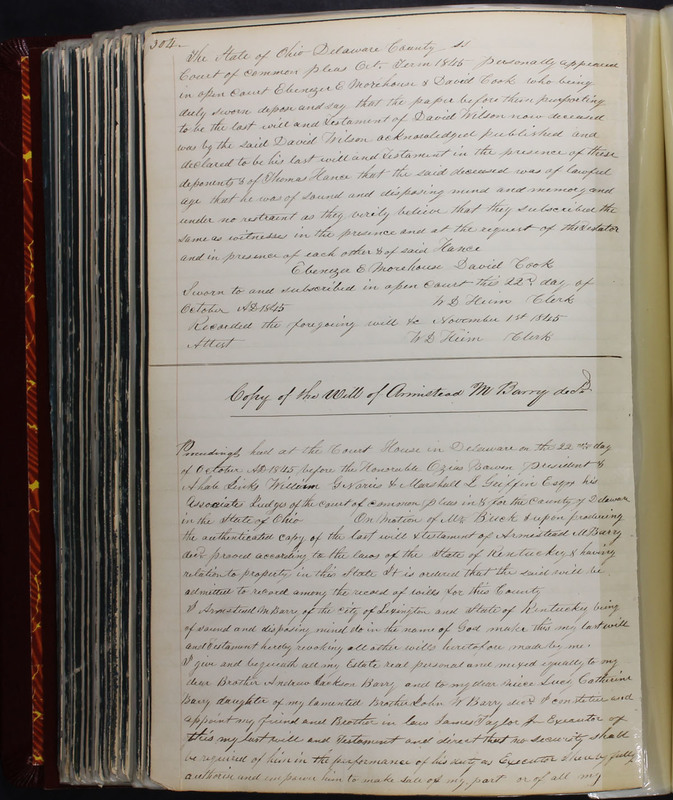 304
The State of Ohio Delaware County ss
Court of Common pleas Oct. Term 1845 personally appeared
in open Court Ebenezer E Morehouse & David Cook who being
duly sworn depose and say that the paper before them purporting
to be the last will and testament of David Wilson now deceased
was by the said David Wilson acknowledged published and
declared to be his last will and testament in the presence of these
deponents & of Thomas Hance that the said deceased was of lawful
age that he was of sound and disposing mind and memory and
under no restraint as they verily believe that they subscribed the
same as witnesses in the presence and at the request of the testator
and in presence of each other & of said Hance
Ebenezer E Morehouse David Cook
Sworn to and subscribed in open court this 22nd day of
October AD 1845 W D Heim Clerk
Recorded the foregoing will &c November 1st 1845
Attest W D Heim Clerk
Copy of the Will of Armistead M Barry decd
Proceedings had at the Court House in Delaware on the 22nd day
of October AD 1845 before the Honorable Ozias Bowen president &
Ahab Jinks William G Norris & Marshall L Griffin Esqrs his
Associates Judges of the court of common pleas in & for the County of Delaware
in the State of Ohio On Motion of Mr Buck & upon producing
the authenticated copy of the last will & testament of Armistead M Barry
decd proved according to the laws of the State of Kentucky & having
relation to property in this State It is ordered that the said will be
admitted to record among the record of wills for this County
I Armistead M Barry of the city of Lexington and State of Kentucky being
of sound and disposing mind do in the name of God make this my last will
and Testament hereby revoking all other wills heretofore made by me.
I give and bequeath all my Estate real personal and mixed equally to my
dear Brother Andrew Jackson Barry and to my dear niece Lucy Catherine
Barry daughter of my lamented Brother John W Barry decd I constitute and
appoint my friend and Brother in law James Taylor Jr Executor of
this my last will and Testament and direct that no security shall
be required of him in the performance of his duty as Executor I hereby fully
authorize and empower him to make sale of my part or of all my